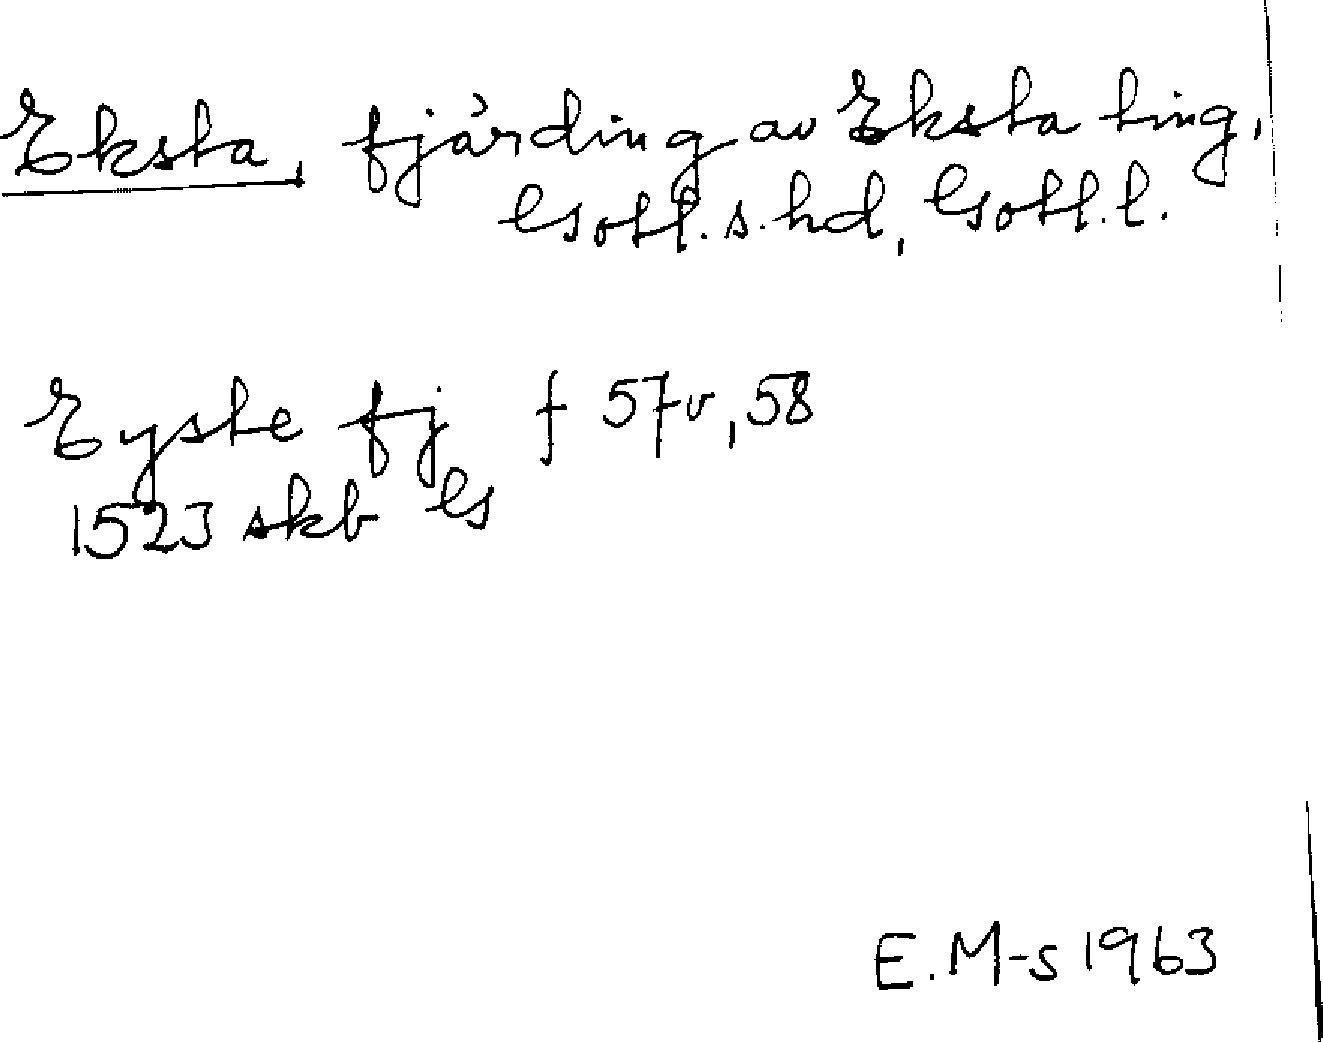 Eksta, fjärding av Eksta ting,
Gotl. s. hd, Gotl. l.
Eyste fj f 57v, 58
1523 skb G
E. M-s 1963